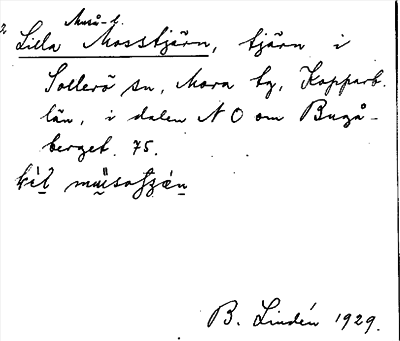 Lilla Mosstjärn, tjärn i
Sollerö sn, Mora tg, Kopparb.
län, i dalen NO om Bugå-
berget. 75.
B. Lindén 1929.